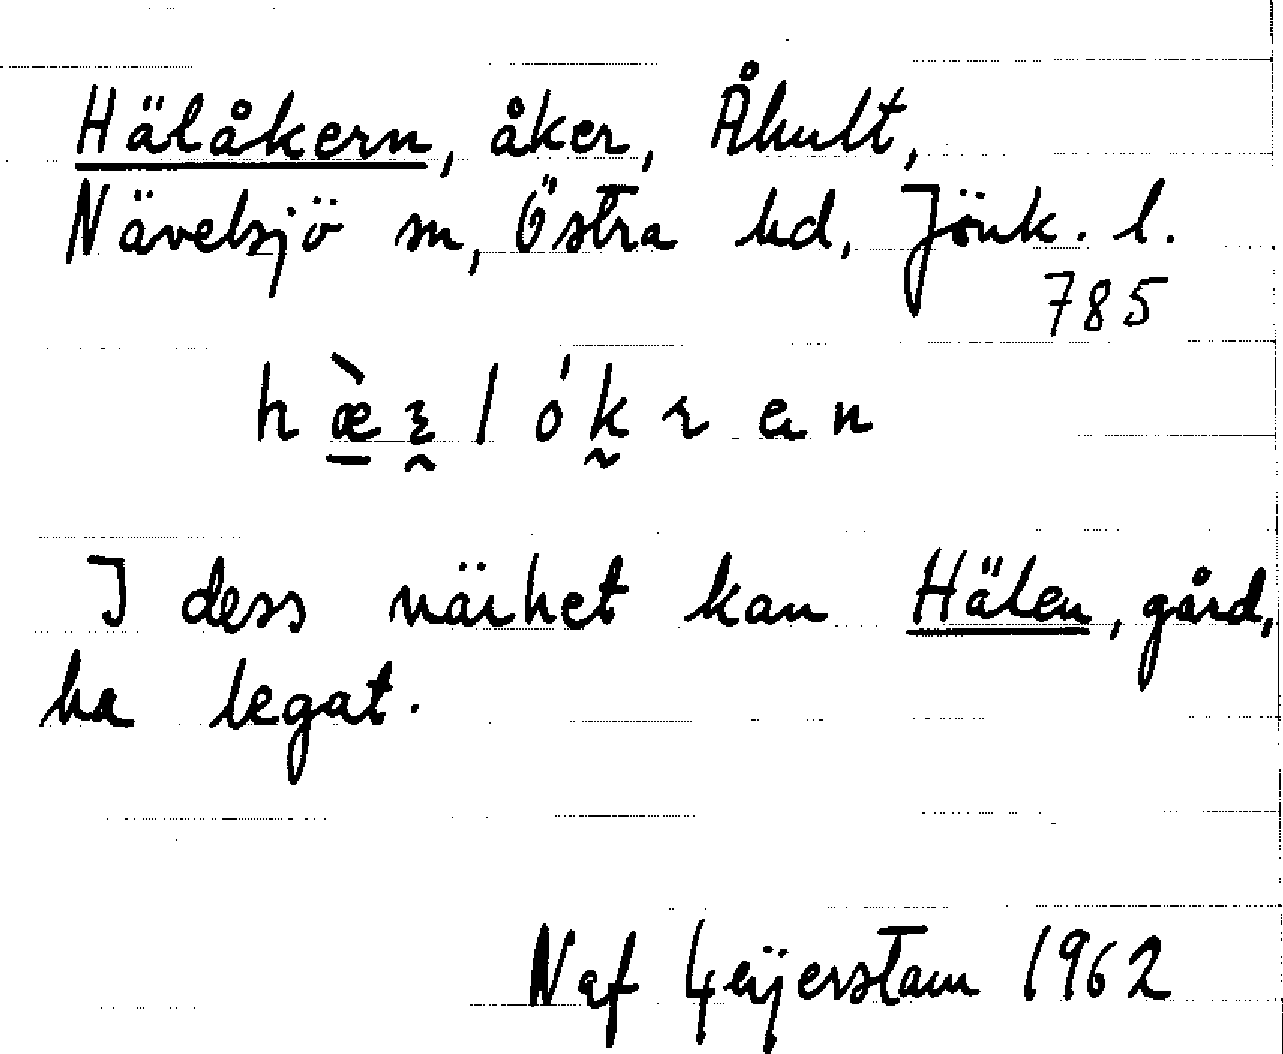 Hälåkern, åker, Åhult,
Nävelsjö sn, Östra hd, Jönk. l.
785
I dess närhet kan Hälen, gård,
ha legat.
N af Geijerstam 1962